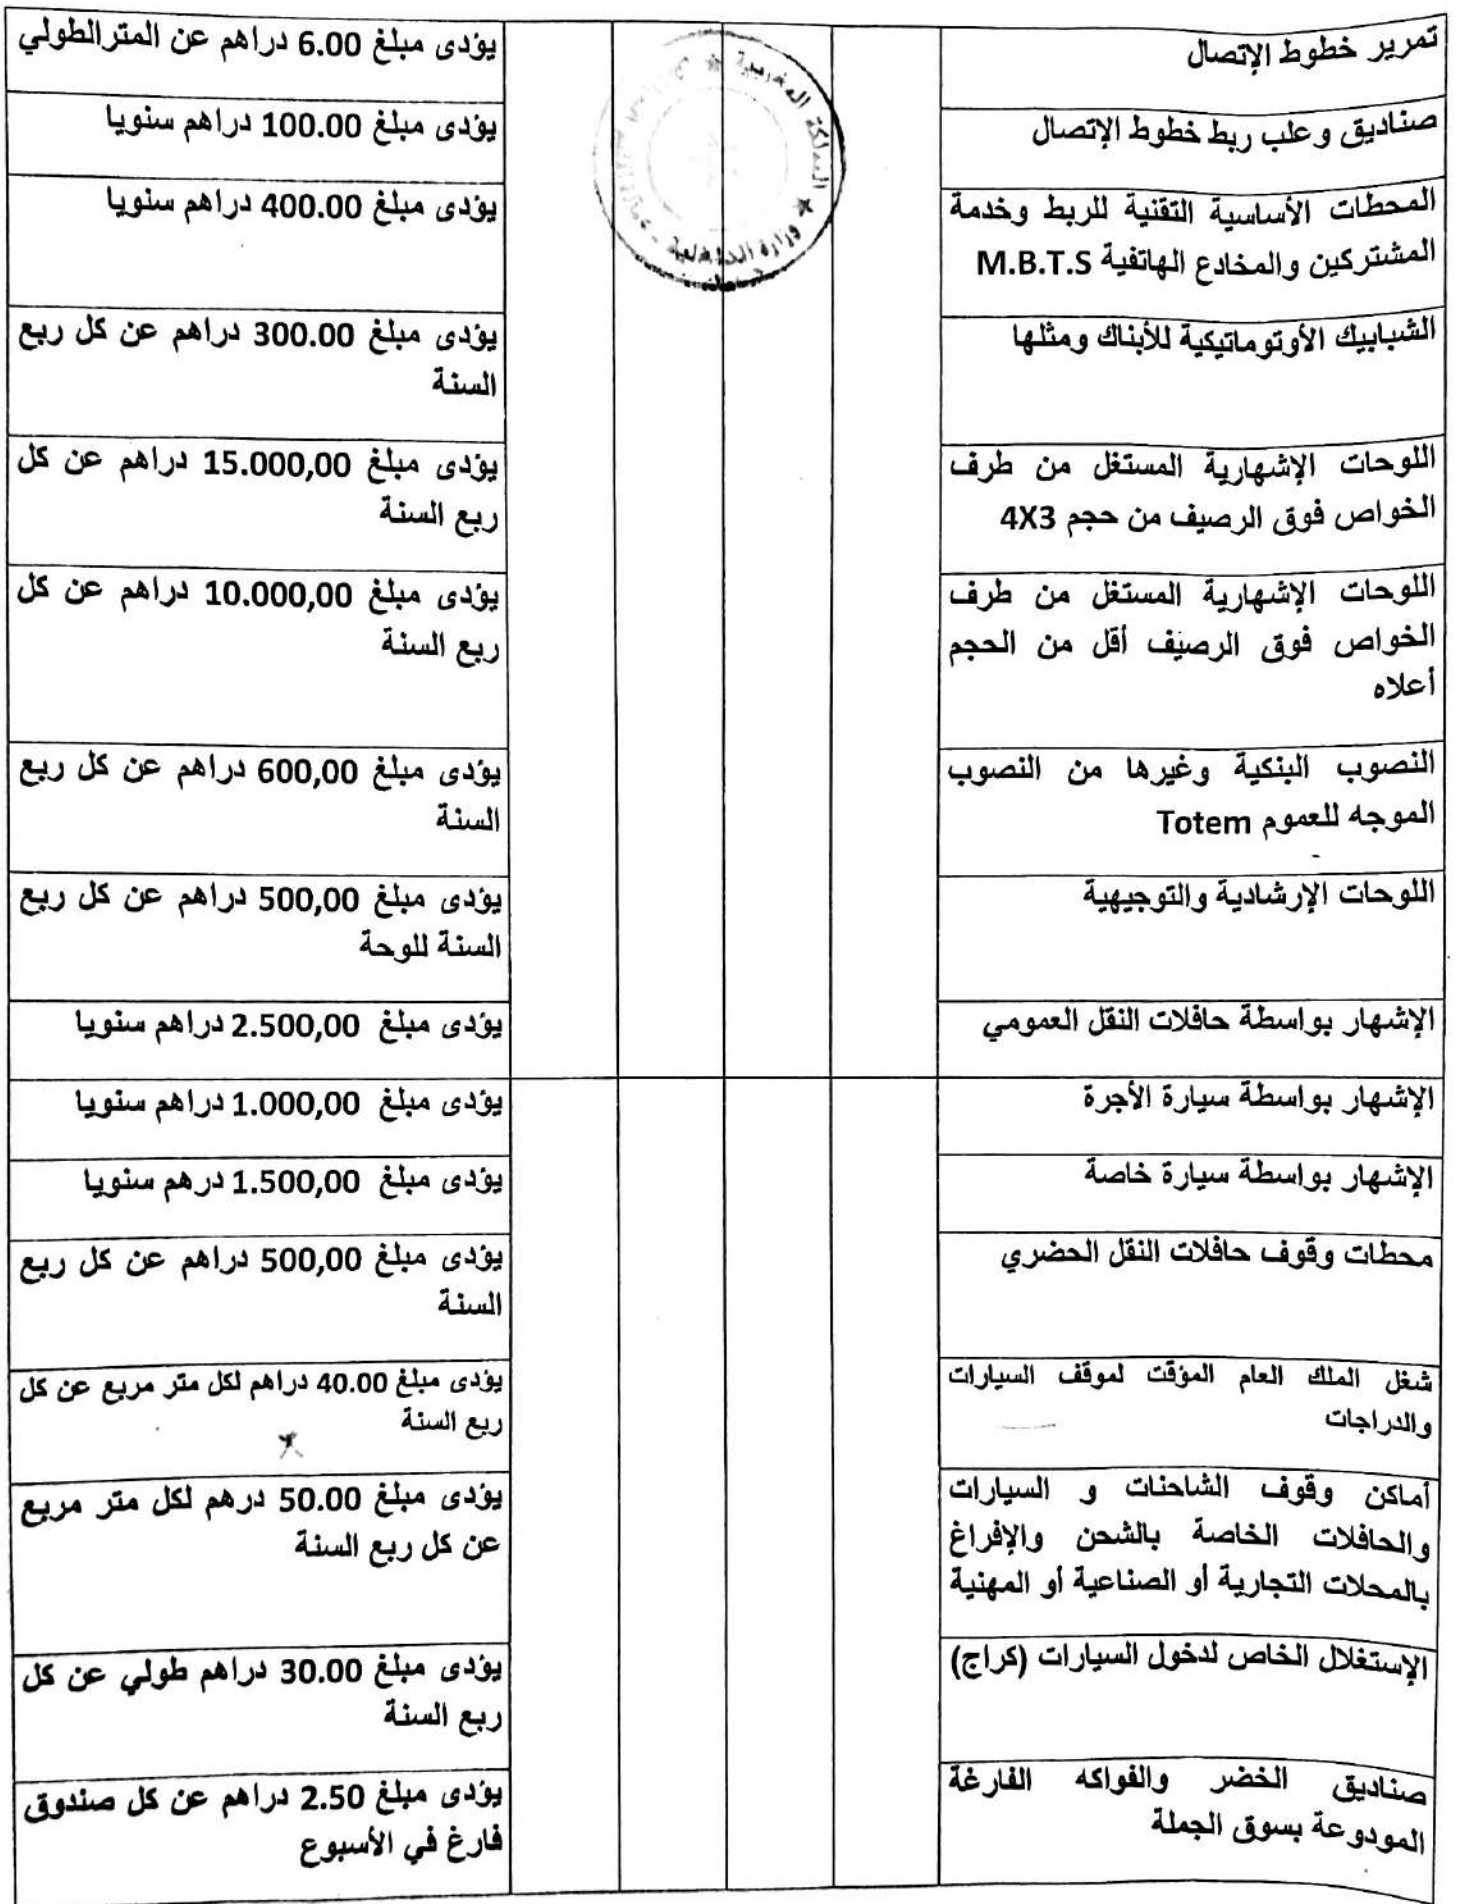 تمرير خطوط الإتصال
يؤدى مبلغ 6.00 دراهم عن المترالطولي
صناديق وعلب ربط خطوط الإتصال
يؤدى مبلغ 100.00 دراهم سنويا
المحطات الأساسية التقنية للربط وخدمة
المشتركين والمخادع الهاتفية M.B.T.S
يؤدى مبلغ 400.00 دراهم سنويا
المملكة المغربية
وزارة الداخلية
الشبابيك الأوتوماتيكية للأبناك ومثلها
يؤدى مبلغ 300.00 دراهم عن كل ربع
السنة
اللوحات الإشهارية المستغل من طرف
الخواص فوق الرصيف من حجم 4X3
يؤدى مبلغ 15.000,00 دراهم عن كل
ربع السنة
اللوحات الإشهارية المستغل من طرف
الخواص فوق الرصيف أقل من الحجم
أعلاه
يؤدى مبلغ 10.000,00 دراهم عن كل
ربع السنة
النصوب البنكية وغيرها من النصوب
الموجه للعموم Totem
يؤدى مبلغ 600,00 دراهم عن كل ربع
السنة
اللوحات الإرشادية والتوجيهية
يؤدى مبلغ 500,00 دراهم عن كل ربع
السنة للوحة
الإشهار بواسطة حافلات النقل العمومي
يؤدى مبلغ 2.500,00 دراهم سنويا
الإشهار بواسطة سيارة الأجرة
يؤدى مبلغ 1.000,00 دراهم سنويا
الإشهار بواسطة سيارة خاصة
يؤدى مبلغ 1.500,00 درهم سنويا
محطات وقوف حافلات النقل الحضري
يؤدى مبلغ 500,00 دراهم عن كل ربع
السنة
شغل الملك العام المؤقت لموقف السيارات
والدراجات
يؤدى مبلغ 40.00 دراهم لكل متر مربع عن كل
ربع السنة
أماكن وقوف الشاحنات و السيارات
والحافلات الخاصة بالشحن والإفراغ
بالمحلات التجارية أو الصناعية أو المهنية
يؤدى مبلغ 50.00 درهم لكل متر مربع
عن كل ربع السنة
الإستغلال الخاص لدخول السيارات (كراج)
يؤدى مبلغ 30.00 دراهم طولي عن كل
ربع السنة
صناديق الخضر والفواكه الفارغة
المودوعة بسوق الجملة
يؤدى مبلغ 2.50 دراهم عن كل صندوق
فارغ في الأسبوع